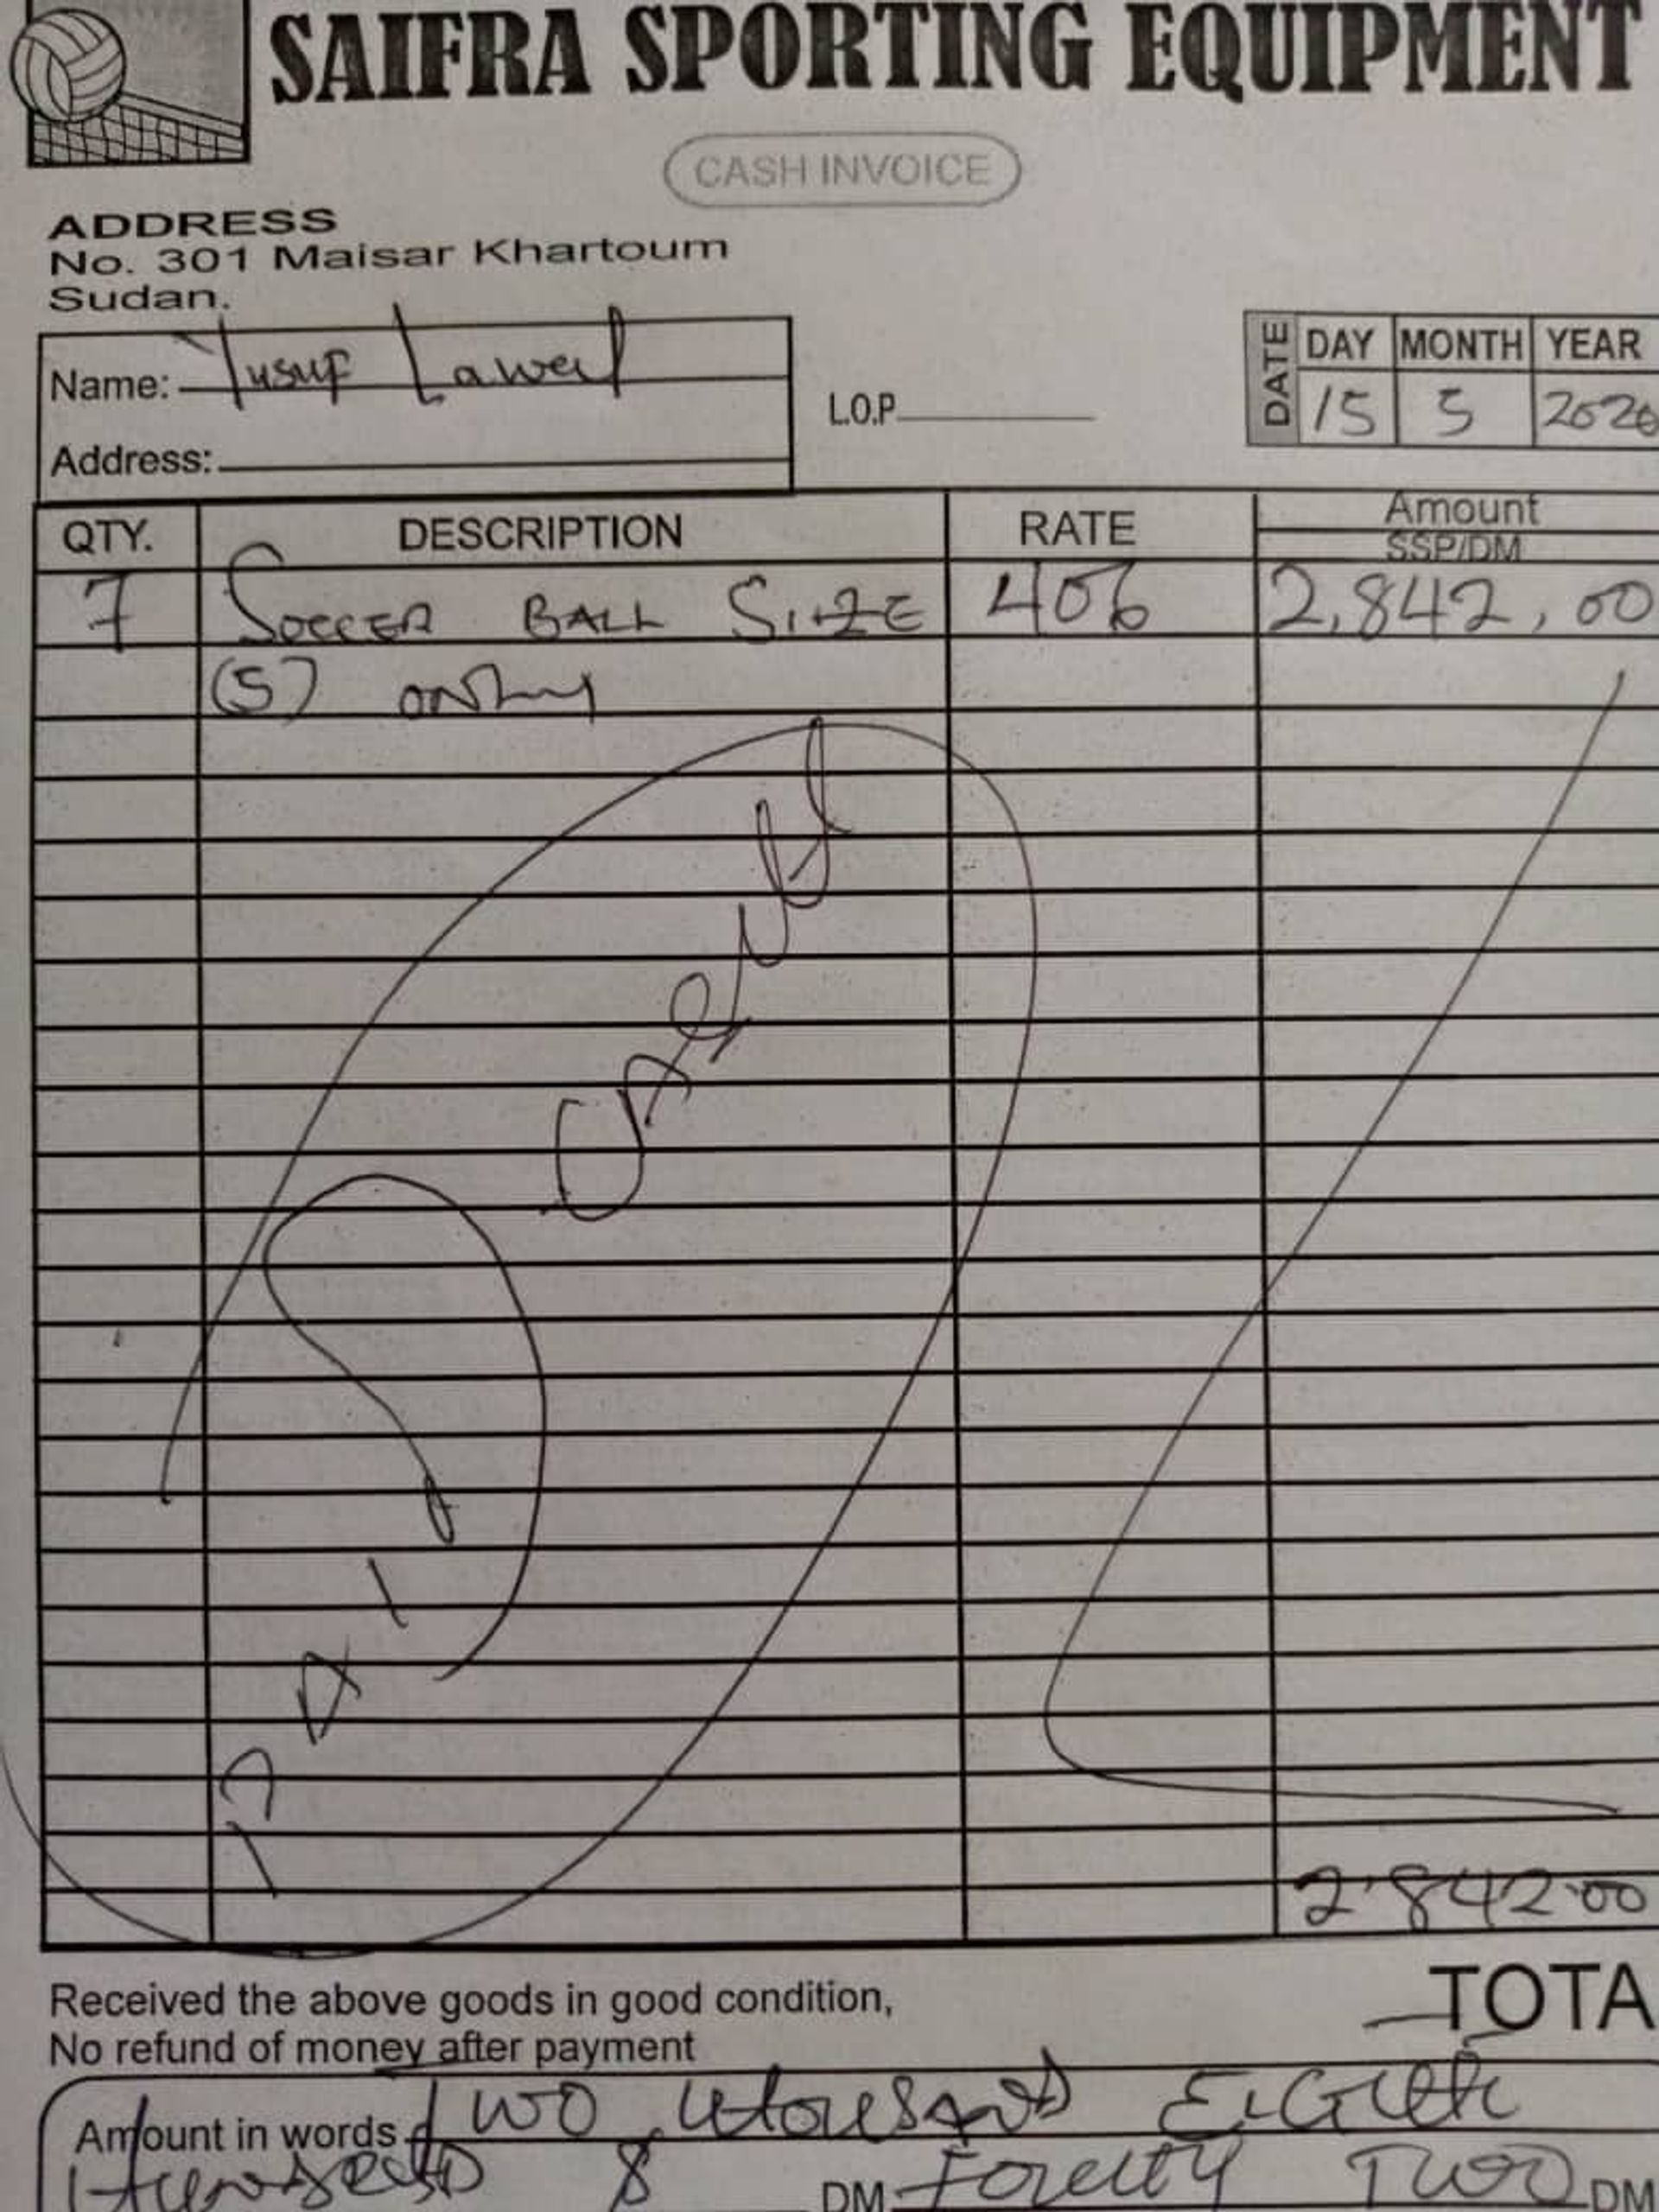 SAIFRA SPORTING EQUIPMENT
CASH INVOICE
ADDRESS
No. 301 Maisar Khartoum
Sudan.
Name: Yusuf Lawal
Address:
L.O.P
DATE DAY MONTH YEAR
15 5 2020
QTY. DESCRIPTION RATE Amount
SSP/DM
7 SOCCER BALL SIZE 406 2,842,00
(5) only
2,842.00
Received the above goods in good condition,
No refund of money after payment
TOTA
Amount in words Two thousand Eight
Hundred & DM Forty Two DM